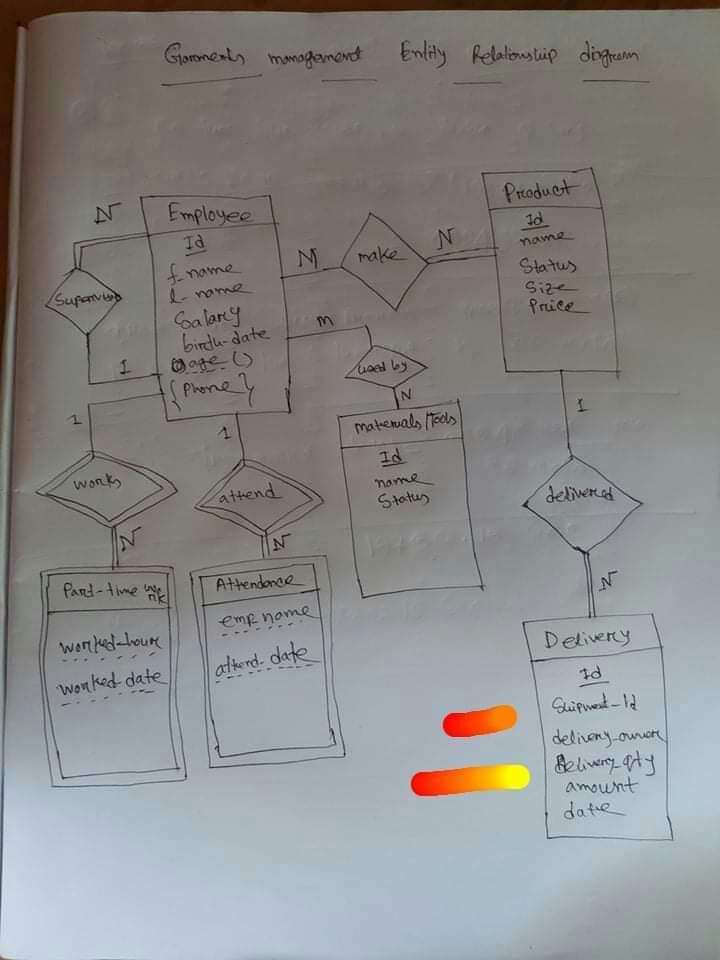 Garments management Entity Relationship diagram
N
Employee
Id
f-name
l-name
Salary
birth-date
age ()
{ Phone }
Supervises
1
M
make
N
Product
Id
name
Status
Size
Price
m
used by
N
Materials/Tools
Id
name
Status
1
works
N
Part-time
worked-hour
worked-date
1
attend
N
Attendence
emp_name
attend-date
1
delivered
N
Delivery
Id
Shipment-Id
delivery-owner
Delivery-qty
amount
date